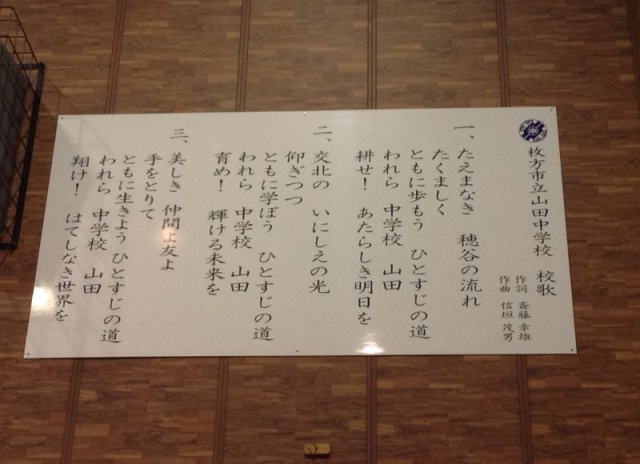 枚方市立山田中学校 校歌
作詞 斎藤 幸雄
作曲 信垣 茂男
一、たえまなき 穂谷の流れ
たくましく
ともに歩もう ひとすじの道
われら 中学校 山田
耕せ! あたらしき明日を
二、交北の いにしえの光
仰ぎつつ
ともに学ぼう ひとすじの道
われら 中学校 山田
育め! 輝ける未来を
三、美しき 仲間よ友よ
手をとりて
ともに生きよう ひとすじの道
われら 中学校 山田
翔け! はてしなき世界を